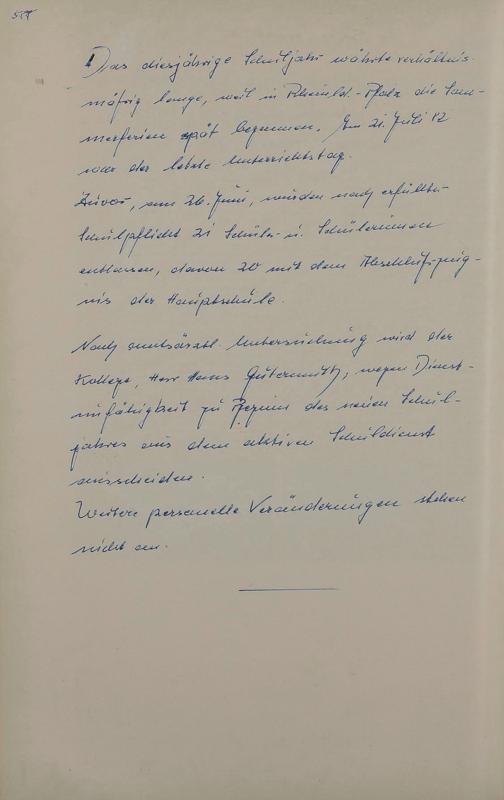 Das diesjährige Schuljahr währte verhältnis-
mäßig lange, weil in Rheinld.-Pfalz die Som-
merferien spät begannen. Am 21. Juli 82
war der letzte Unterrichtstag.
Zuvor, am 26. Juni, wurden nach erfüllter
Schulpflicht 21 Schüler u. Schülerinnen
entlassen, davon 20 mit dem Abschlußzeug-
nis der Hauptschule.
Nach amtsärztl. Untersuchung wird der
Kollege, Herr Hans Gutermuth, wegen Dienst-
unfähigkeit zu Beginn des neuen Schul-
jahres aus dem aktiven Schuldienst
ausscheiden.
Weitere personelle Veränderungen stehen
nicht an.